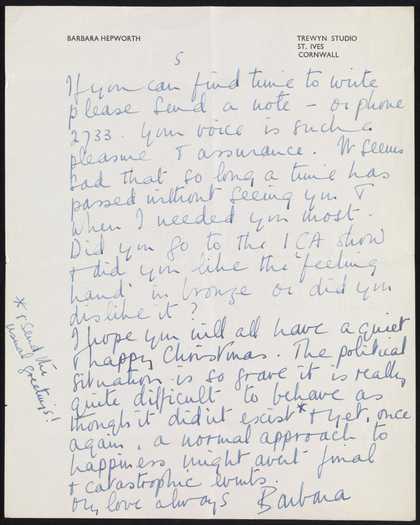 BARBARA HEPWORTH
TREWYN STUDIO
ST. IVES
CORNWALL
5
If you can find time to write
please send a note – or phone
2733. Your voice is such a
pleasure & assurance. It seems
sad that so long a time has
passed without seeing you &
when I needed you most.
Did you go to the ICA show
& did you like the 'feeling
hand' in bronze or did you
dislike it?
I hope you will all have a quiet
& happy Christmas. The political
situation is so grave it is really
quite difficult to behave as
though it didn't exist* & yet, once
again, a normal approach to
happiness might avert final
& catastrophic events.
My love always Barbara
* & send the
usual greetings!